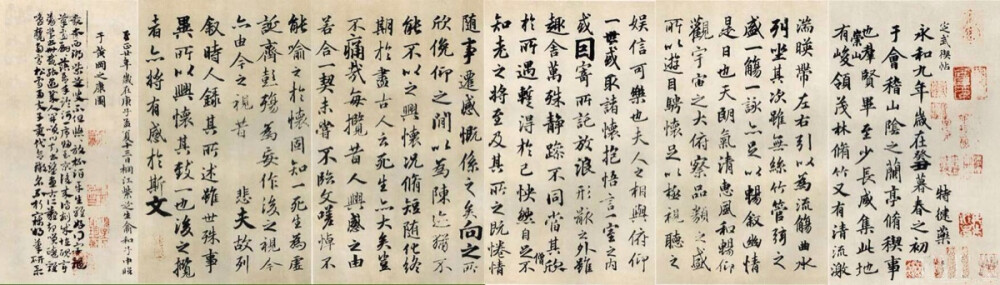 定武禊帖
特健藥
永和九年歲在癸丑暮春之初
于會稽山陰之蘭亭脩稧事
也群賢畢至少長咸集此地
有崇山峻領茂林脩竹又有清流激
湍暎帶左右引以為流觴曲水
列坐其次雖無絲竹管弦之
盛一觴一詠亦足以暢敘幽情
是日也天朗氣清惠風和暢仰
觀宇宙之大俯察品類之盛
所以遊目騁懷足以極視聽之
娛信可樂也夫人之相與俯仰
一世或取諸懷抱悟言一室之內
或因寄所託放浪形骸之外雖
趣舍萬殊靜躁不同當其欣
於所遇蹔得於己快然自足不
僧
知老之將至及其所之既惓情
隨事遷感慨係之矣向之所
欣俛仰之閒以為陳迹猶不
能不以之興懷況脩短隨化終
期於盡古人云死生亦大矣豈
不痛哉每攬昔人興感之由
若合一契未嘗不臨文嗟悼不
能喻之於懷固知一死生為虛
誕齊彭殤為妄作後之視今
亦由今之視昔 悲夫故列
敘時人錄其所述雖世殊事
異所以興懷其致一也後之攬
者亦將有感於斯文
至正廿年歲在庚子夏 桐江紫芝生俞和
于黃岡之康園